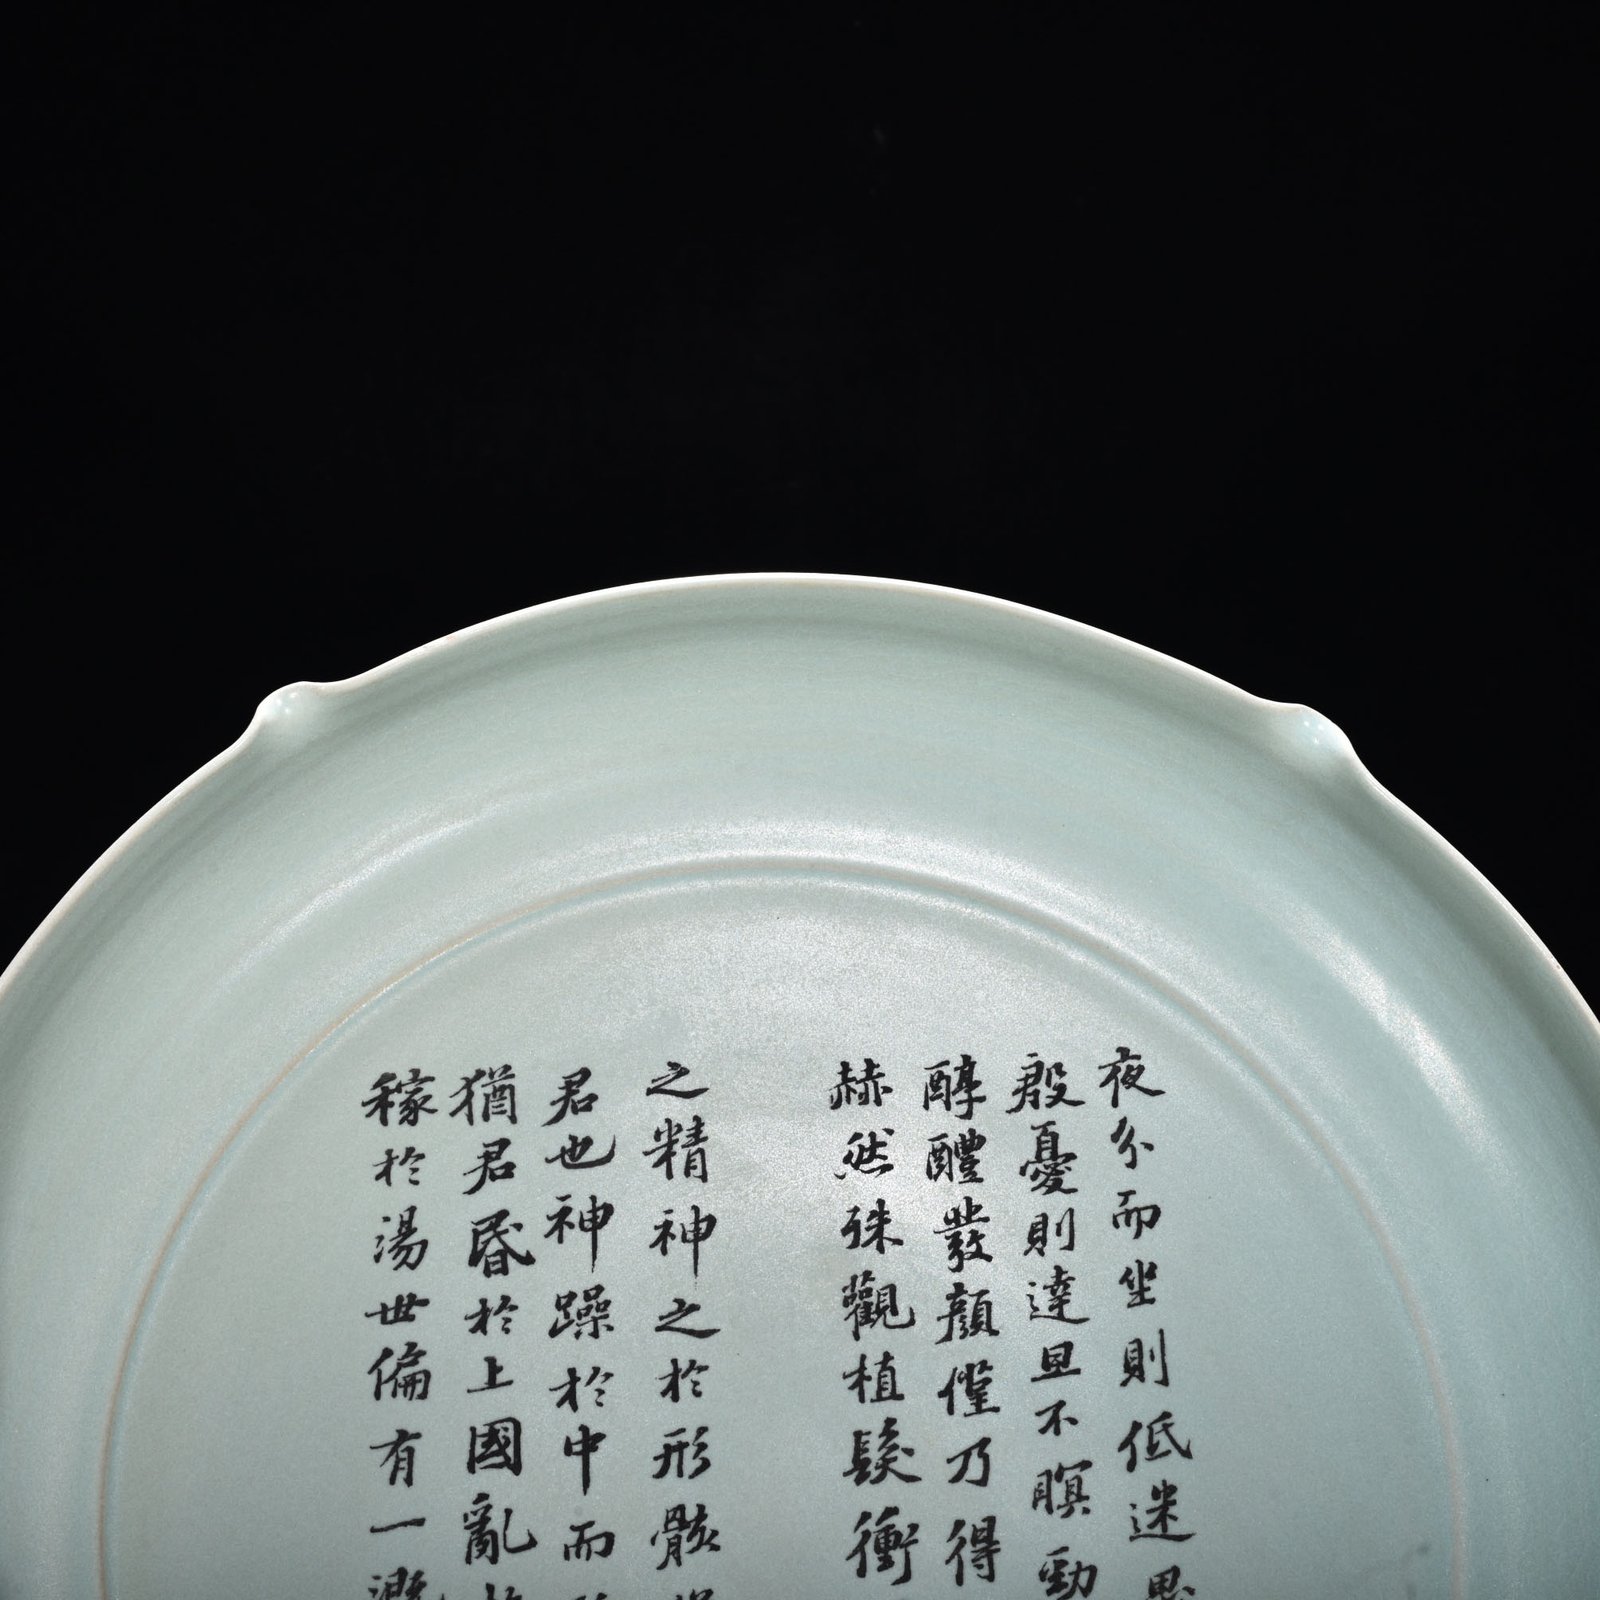 夜分而坐則低迷思
殷憂則達旦不瞑勁
醇醴發顏僅乃得
赫然殊觀植髮衝
之精神之於形骸
君也神躁於中而
猶君昏於上國亂
稼於湯世偏有一溉